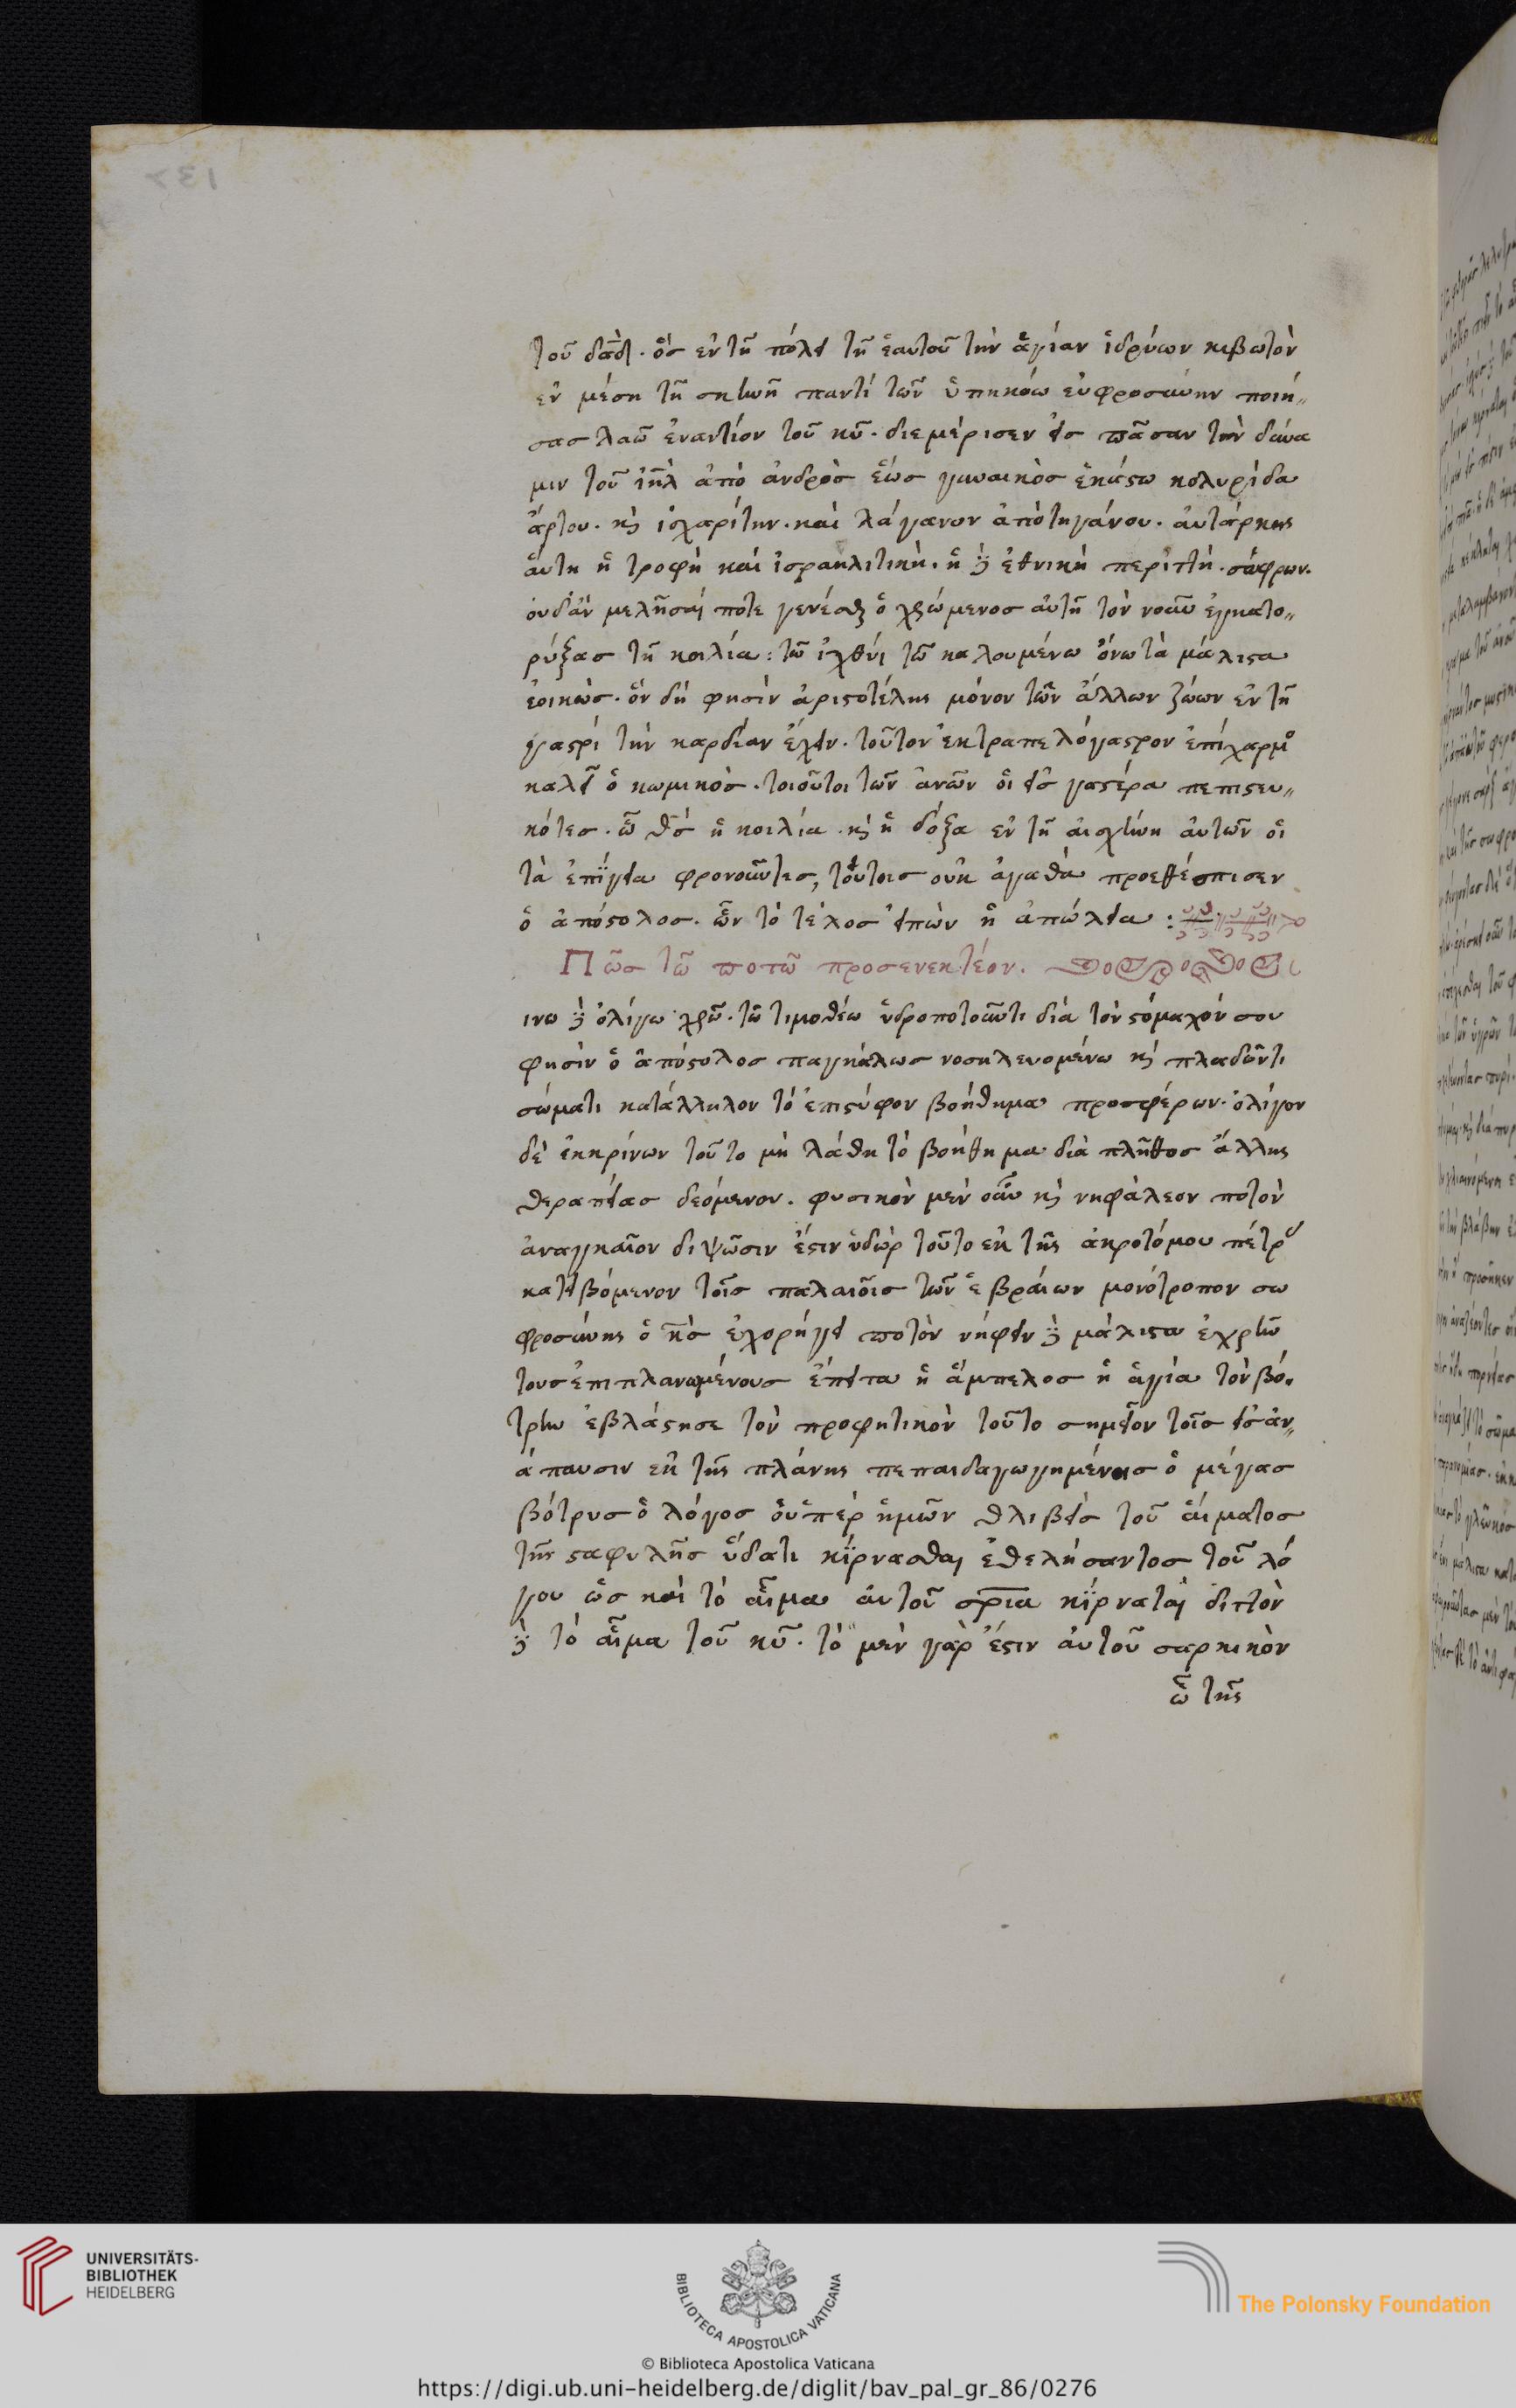 τοῦ δᾱδ̄. ὃς ἐν τῇ πόλει τῇ ἑαυτοῦ τὴν ἁγίαν ἱδρύων κιβωτὸν
ἐν μέση τῆ σκηνῆ παντὶ τῶν ὑπηκόω εὐφροσύνην ποιή„
σας λαῶ ἐναντίον τοῦ κῡ. διεμέρισεν εἰς πᾶσαν τὴν δύνα
μιν τοῦ ἰη̄λ ἀπὸ ἀνδρὸς ἕως γυναικὸς ἑκάστω κολυρίδα
ἄρτου. κὶ ἐσχαρίτην. καὶ λάγανον ἀπὸ τηγάνου. αὐτάρκης
αὕτη ἡ τροφὴ καὶ ἰσραηλιτικὴ. ἡ δὲ ἐθνικὴ περιττὴ. σώφρων.
οὐδ' ἂν μελῆσαί ποτε γενέσθαι ὁ χρώμενος αὐτῇ τὸν νοῦν ἐγκατο„
ρύξας τῆ κοιλία: τῶ ἰχθύι τῶ καλουμένω ὄνω τὰ μάλιστα
ἐοικὼς. ὅν δή φησὶν ἀριστοτέλης μόνον τῶν ἄλλων ζώων ἐν τῆ
γαστρὶ τὴν καρδίαν ἔχειν. τοῦτον ἐκτραπελόγαστρον ἐπίχαρμο
καλεῖ ὁ κωμικὸς. τοιοῦτοι τῶν ἀνῶν οἱ εἰς γαστέρα πεπιστευ„
κότες. ὧ θς̄ ἡ κοιλία. κὶ ἡ δόξα ἐν τῆ αἰσχύνη αὐτῶν οἱ
τὰ ἐπίγεια φρονοῦντες, τούτοις οὐκ ἀγαθὰ προεθέσπισεν
ὁ ἀπόστολος. ὧν τὸ τέλος εἰπὼν ἡ ἀπώλεια :
Πῶς τῶ ποτῶ προσενεκτέον.
ινω δὲ ὀλίγω χρῶ. τῶ τιμοθέω ὑδροποτοῦντι διὰ τὸν στόμαχόν σου
φησὶν ὁ ἀπόστολος παγκάλως νοσηλευομένω κὶ πλαδῶντι
σώματι κατάλληλον τὸ ἐπιστύφον βοήθημα προσφέρων. ὀλίγον
δὲ ἐκκρίνων τοῦτο μὴ λάθη τὸ βοήθημα διὰ πλῆθος ἄλλης
θεραπείας δεόμενον. φυσικὸν μὲν οὖν κὶ νηφάλεον ποτὸν
ἀναγκαῖον διψῶσιν ἐστὶν ὑδὼρ τοῦτο ἐκ τῆς ἀκροτόμου πέτρ
κατειβόμενον τοῖς παλαιοῖς τῶν ἑβραίων μονότροπον σω
φροσύνης ὁ κς̄ ἐχορήγει ποτὸν νήφειν δὲ μάλιστα ἐχρῆν
τοὺς ἐπιπλανωμένους ἔπειτα ἡ ἄμπελος ἡ ἁγία τὸν βό.
τρυν ἐβλάστησε τὸν προφητικὸν τοῦτο σημεῖον τοῖς εἰς ἀν„
άπαυσιν ἐκ τῆς πλάνης πεπαιδαγωγημένοις ὁ μέγας
βότρυς ὁ λόγος ὁ ὑπὲρ ἡμῶν θλιβεὶς τοῦ αἵματος
τῆς σταφυλῆς ὕδατι κίρνασθαι ἐθελήσαντος τοῦ λό
γου ὡς καὶ τὸ αἷμα αὐτοῦ σρ̄ια κίρναται διττὸν
δὲ τὸ αἷμα τοῦ κῡ. τὸ μὲν γὰρ ἐστὶν αὐτοῦ σαρκικὸν
ὧ τῆς
UNIVERSITÄTS-
BIBLIOTHEK
HEIDELBERG
BIBLIOTECA APOSTOLICA VATICANA
The Polonsky Foundation
© Biblioteca Apostolica Vaticana
https://digi.ub.uni-heidelberg.de/diglit/bav_pal_gr_86/0276